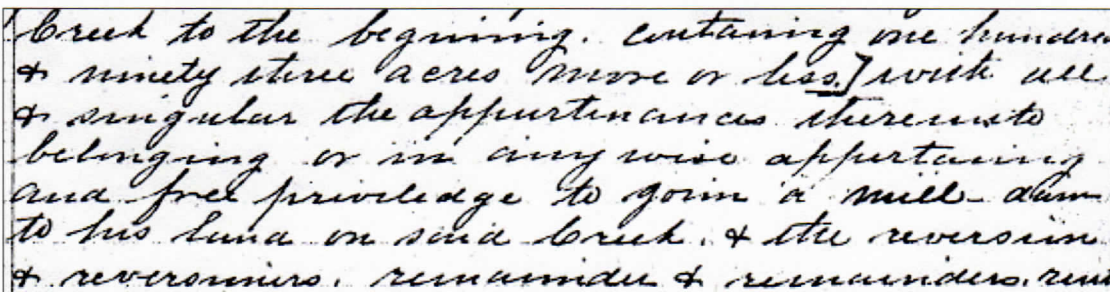 Creek to the begining. containing one hundred
& ninety three acres more or less.] with all
& singular the appurtinances thereunto
belonging or in any wise appertaining
and free priviledge to goin a mill-dam
to his land on said Creek. & the reversion
& reversoners. remainder & remainders.